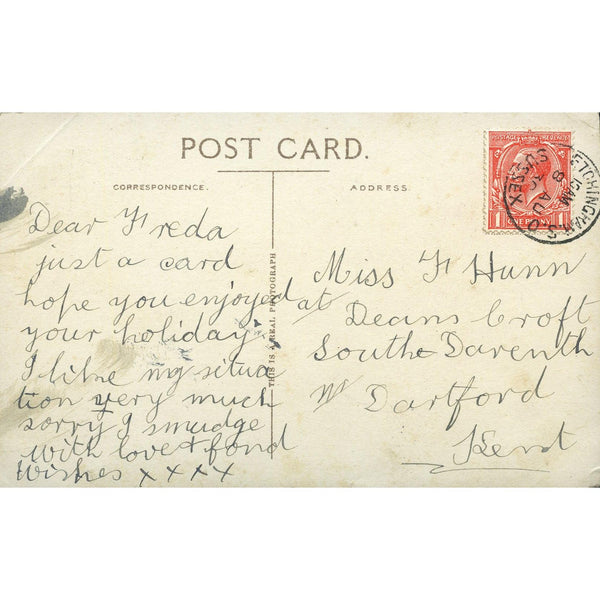 POST CARD.
CORRESPONDENCE.
ADDRESS.
Dear Freda
just a card
hope you enjoyed
your holiday
I like my situa
tion very much
sorry I smudge
with love & fond
wishes x x x x
THIS IS A REAL PHOTOGRAPH
Miss F Hunn
at
Deans Croft
South Darenth
Nr Dartford
Kent
POSTAGE REVENUE
1 1
ONE PENNY
ETCHINGHAM S.O
10 AM
8 AU
SUSSEX